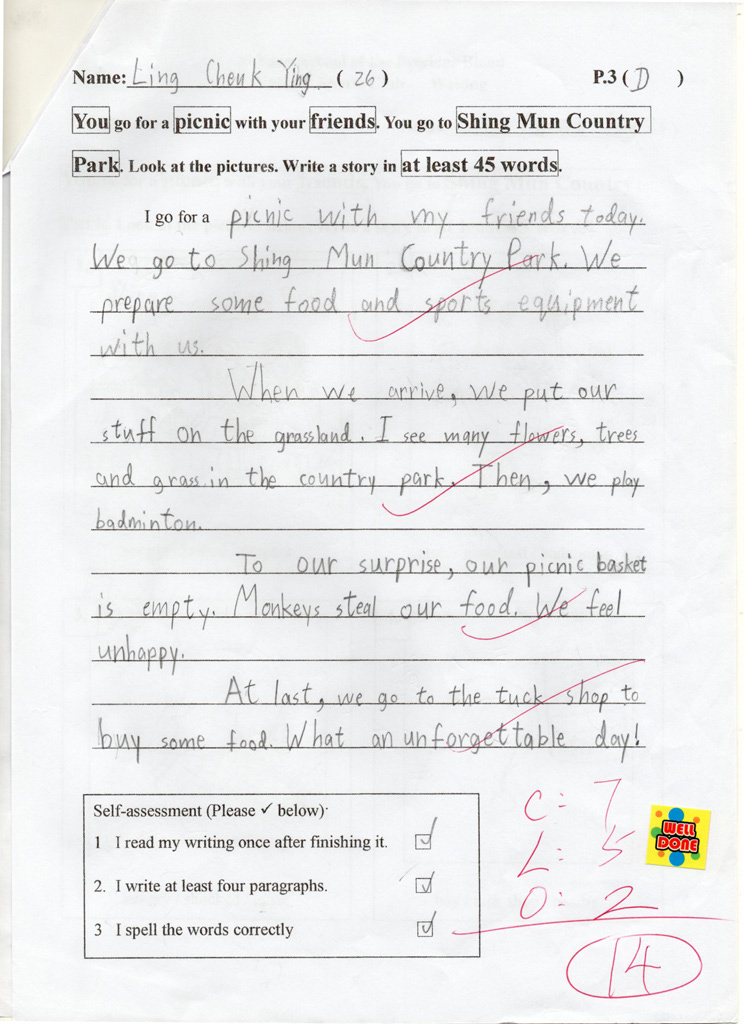 Name: Ling Cheuk Ying ( 26 ) P.3 ( D )
You go for a picnic with your friends. You go to Shing Mun Country
Park. Look at the pictures. Write a story in at least 45 words.
I go for a picnic with my friends today.
We go to Shing Mun Country Park. We
prepare some food and sports equipment
with us.
When we arrive, we put our
stuff on the grassland. I see many flowers, trees
and grass in the country park. Then, we play
badminton.
To our surprise, our picnic basket
is empty. Monkeys steal our food. We feel
unhappy.
At last, we go to the tuck shop to
buy some food. What an unforgettable day!
Self-assessment (Please ✓ below)
1 I read my writing once after finishing it. ✓
2. I write at least four paragraphs. ✓
3 I spell the words correctly ✓
C: 7
L: 5
O: 2
14
WELL
DONE